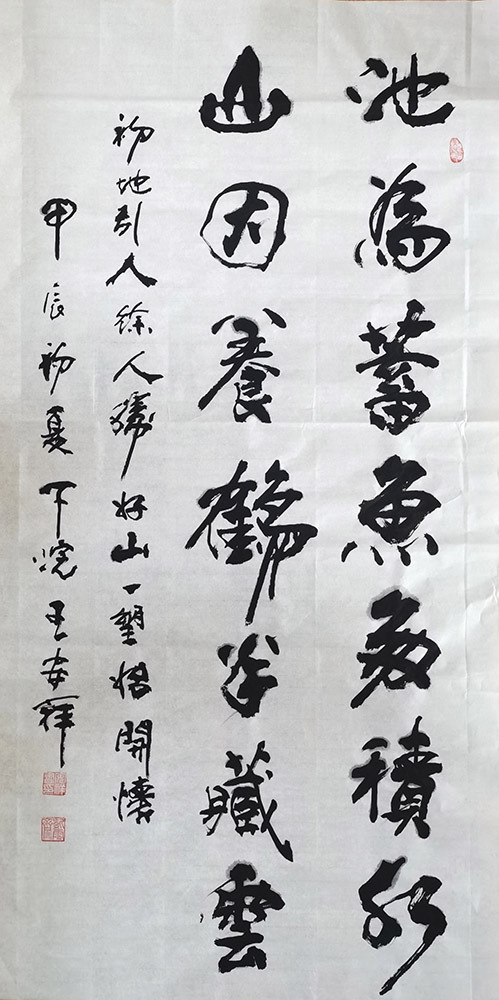 池為蓄魚積水
山因養鶴半藏雲
初地引人徐入勝好山一望恰開懷
甲辰初夏下浣王安祥